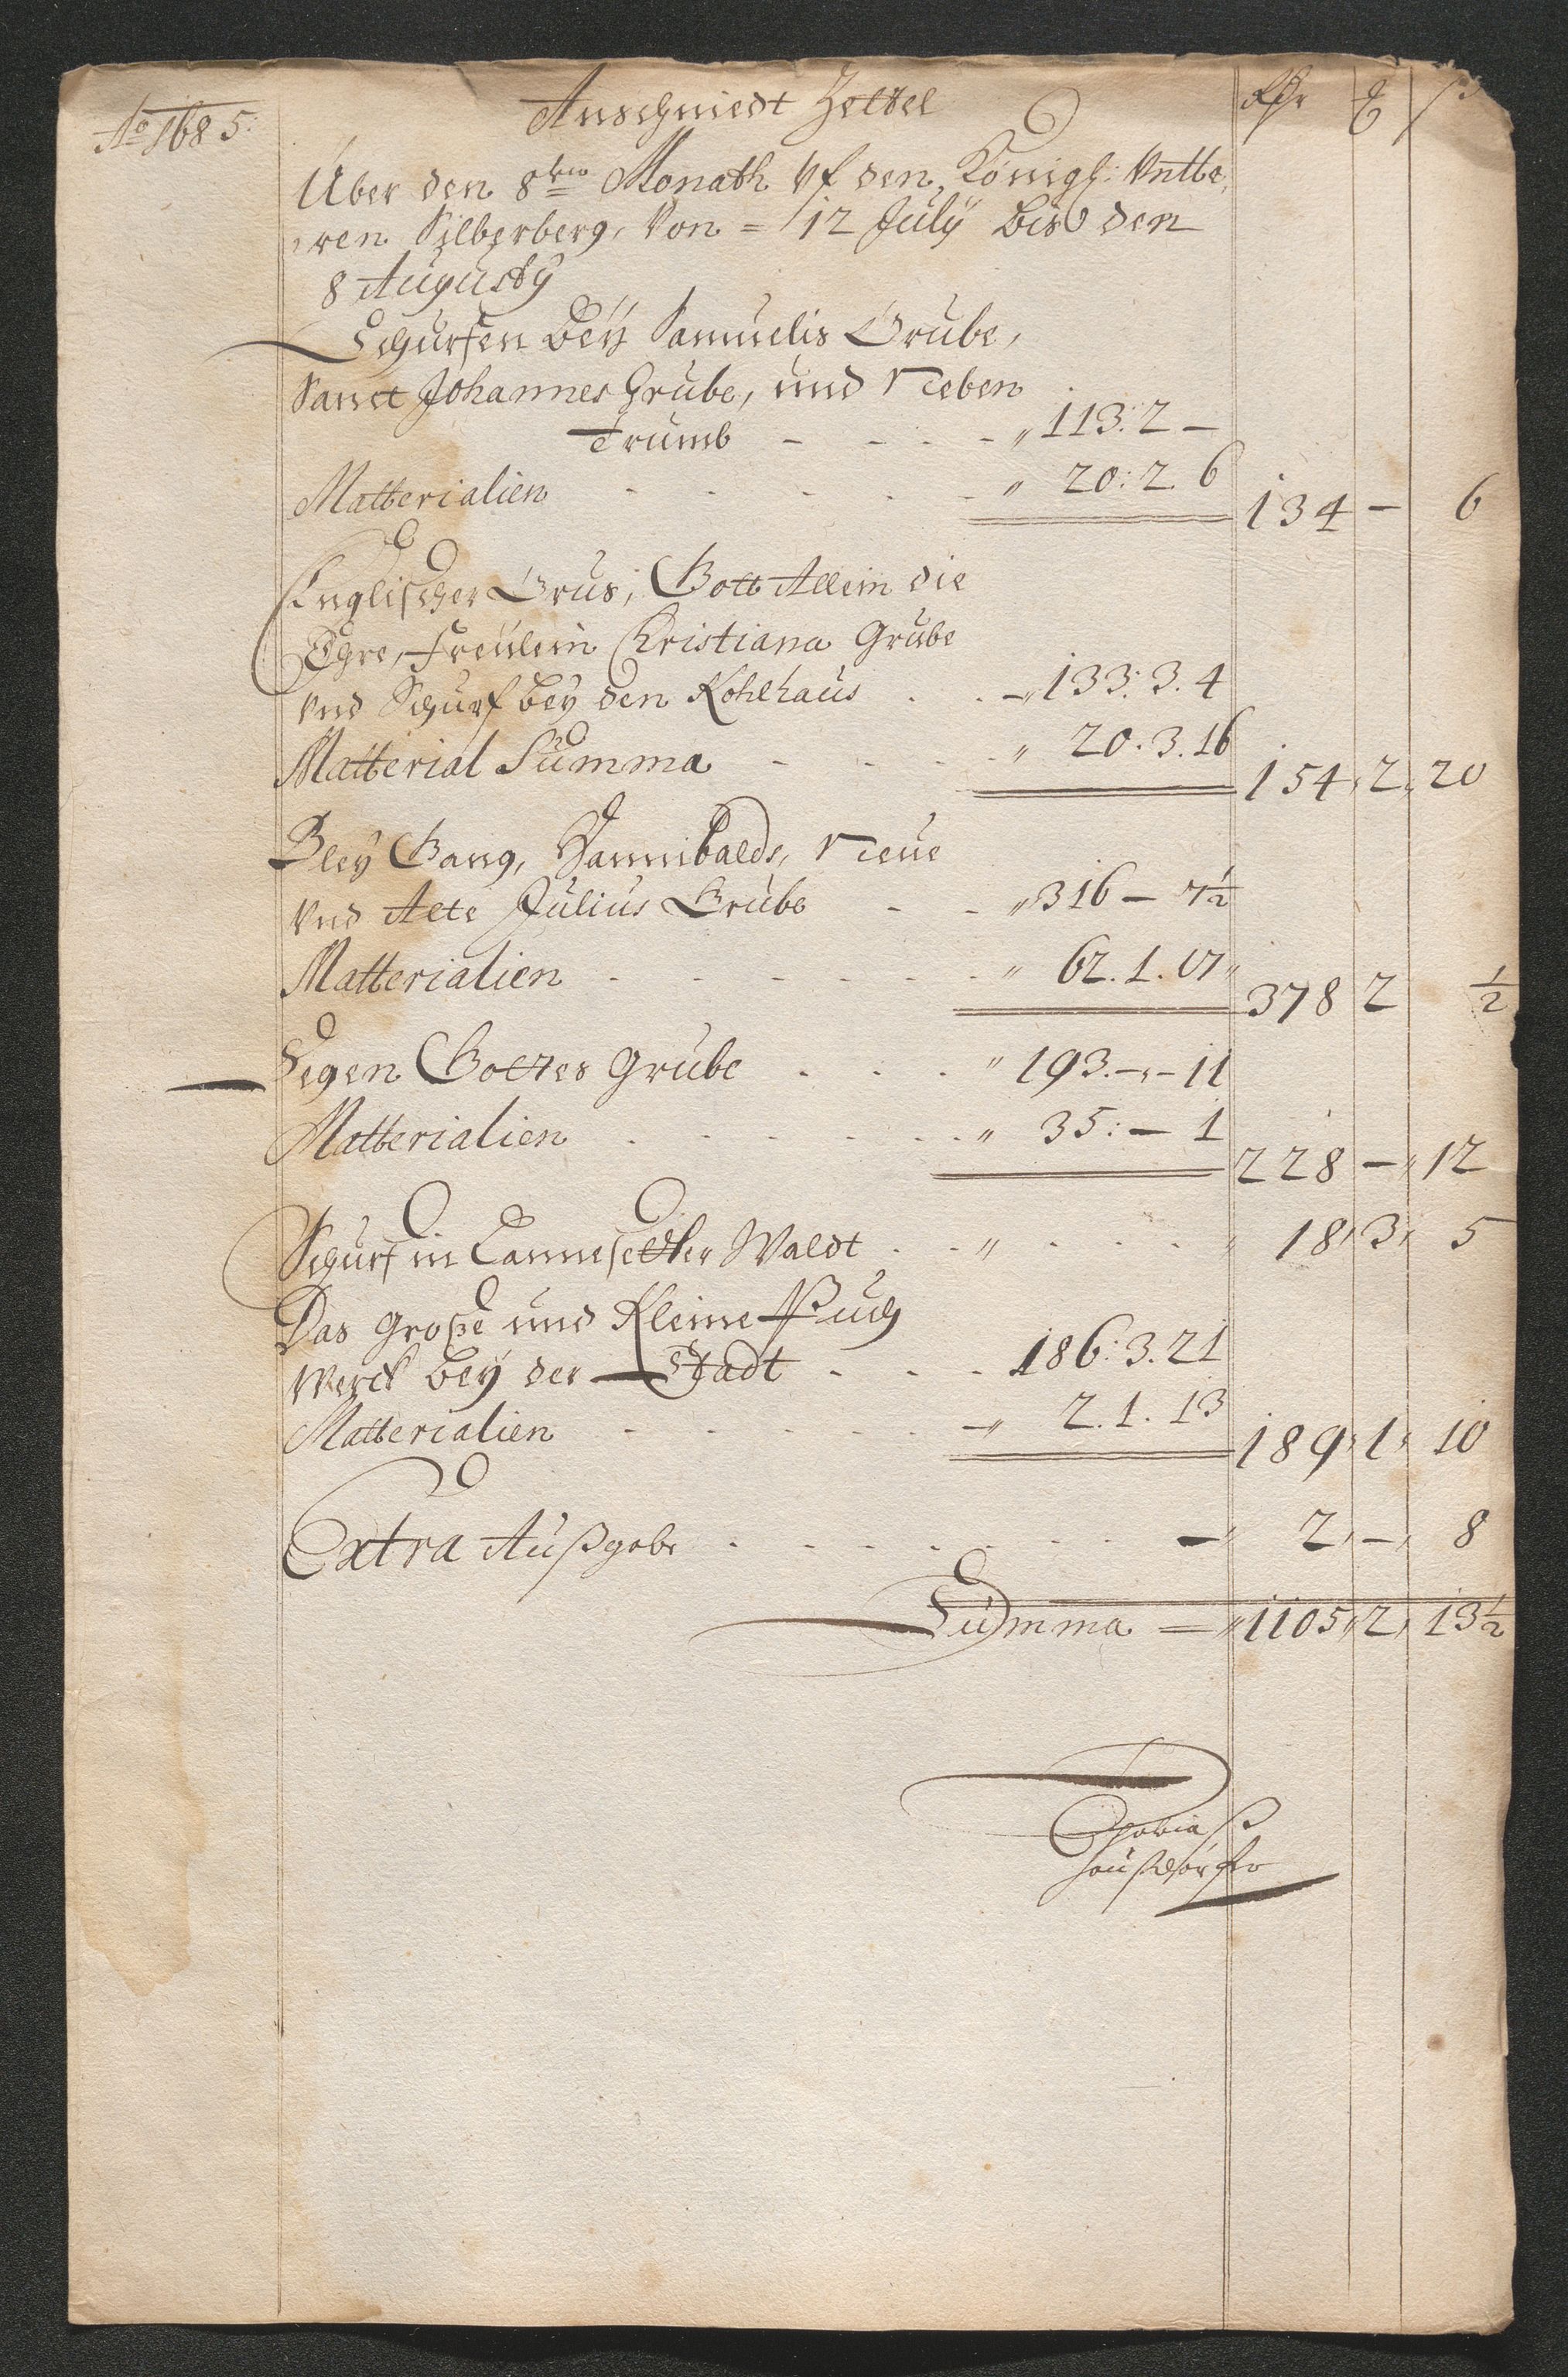 Ao 1685:
Anschniedt Zettel
Rthr
Über den 8ten Monath Vf den Königl: Vntte,
,ren Silberberg, Von = 12 July bis den
8 Augusty
Schurfen bey Samuelis Grube,
Sanct Johannes Grube, und Neben
Trumb - - - - „ 113:2 -
Matterialien - - - - - „ 20:2.6 134 - 6
Englischer Grus, Gott Allein die
Ehre, Freülein Christiana Grube
Vnd Schurf bey den Kohlhaus . . - „ 133:3.4
Matterial Summa - - - - „ 20.3.16 154,2,20
Bley Gang, Hannibalds, Neue
Vnd Alte Julius Grube - - „ 316 - 7½
Matterialien - - - - - - „ 62.1.17 „ 378 2 ½
Segen Gottes Grube . . . „ 193.-,-11
Matterialien . - - - - - „ 35:- 1 228 - „ 12
Schurf in Waldt . - „ . . . . „ 18,3, 5
Das große und Kleine Puch
Werck bey der Stadt - - - 186:3.21
Matterialien - - - - - - „ 2.1.13 189,1, 10
Extra Außgabe . . . . . . . - „ 2,-, 8
Summa = „ 1105,2, 13½
Thobiaß